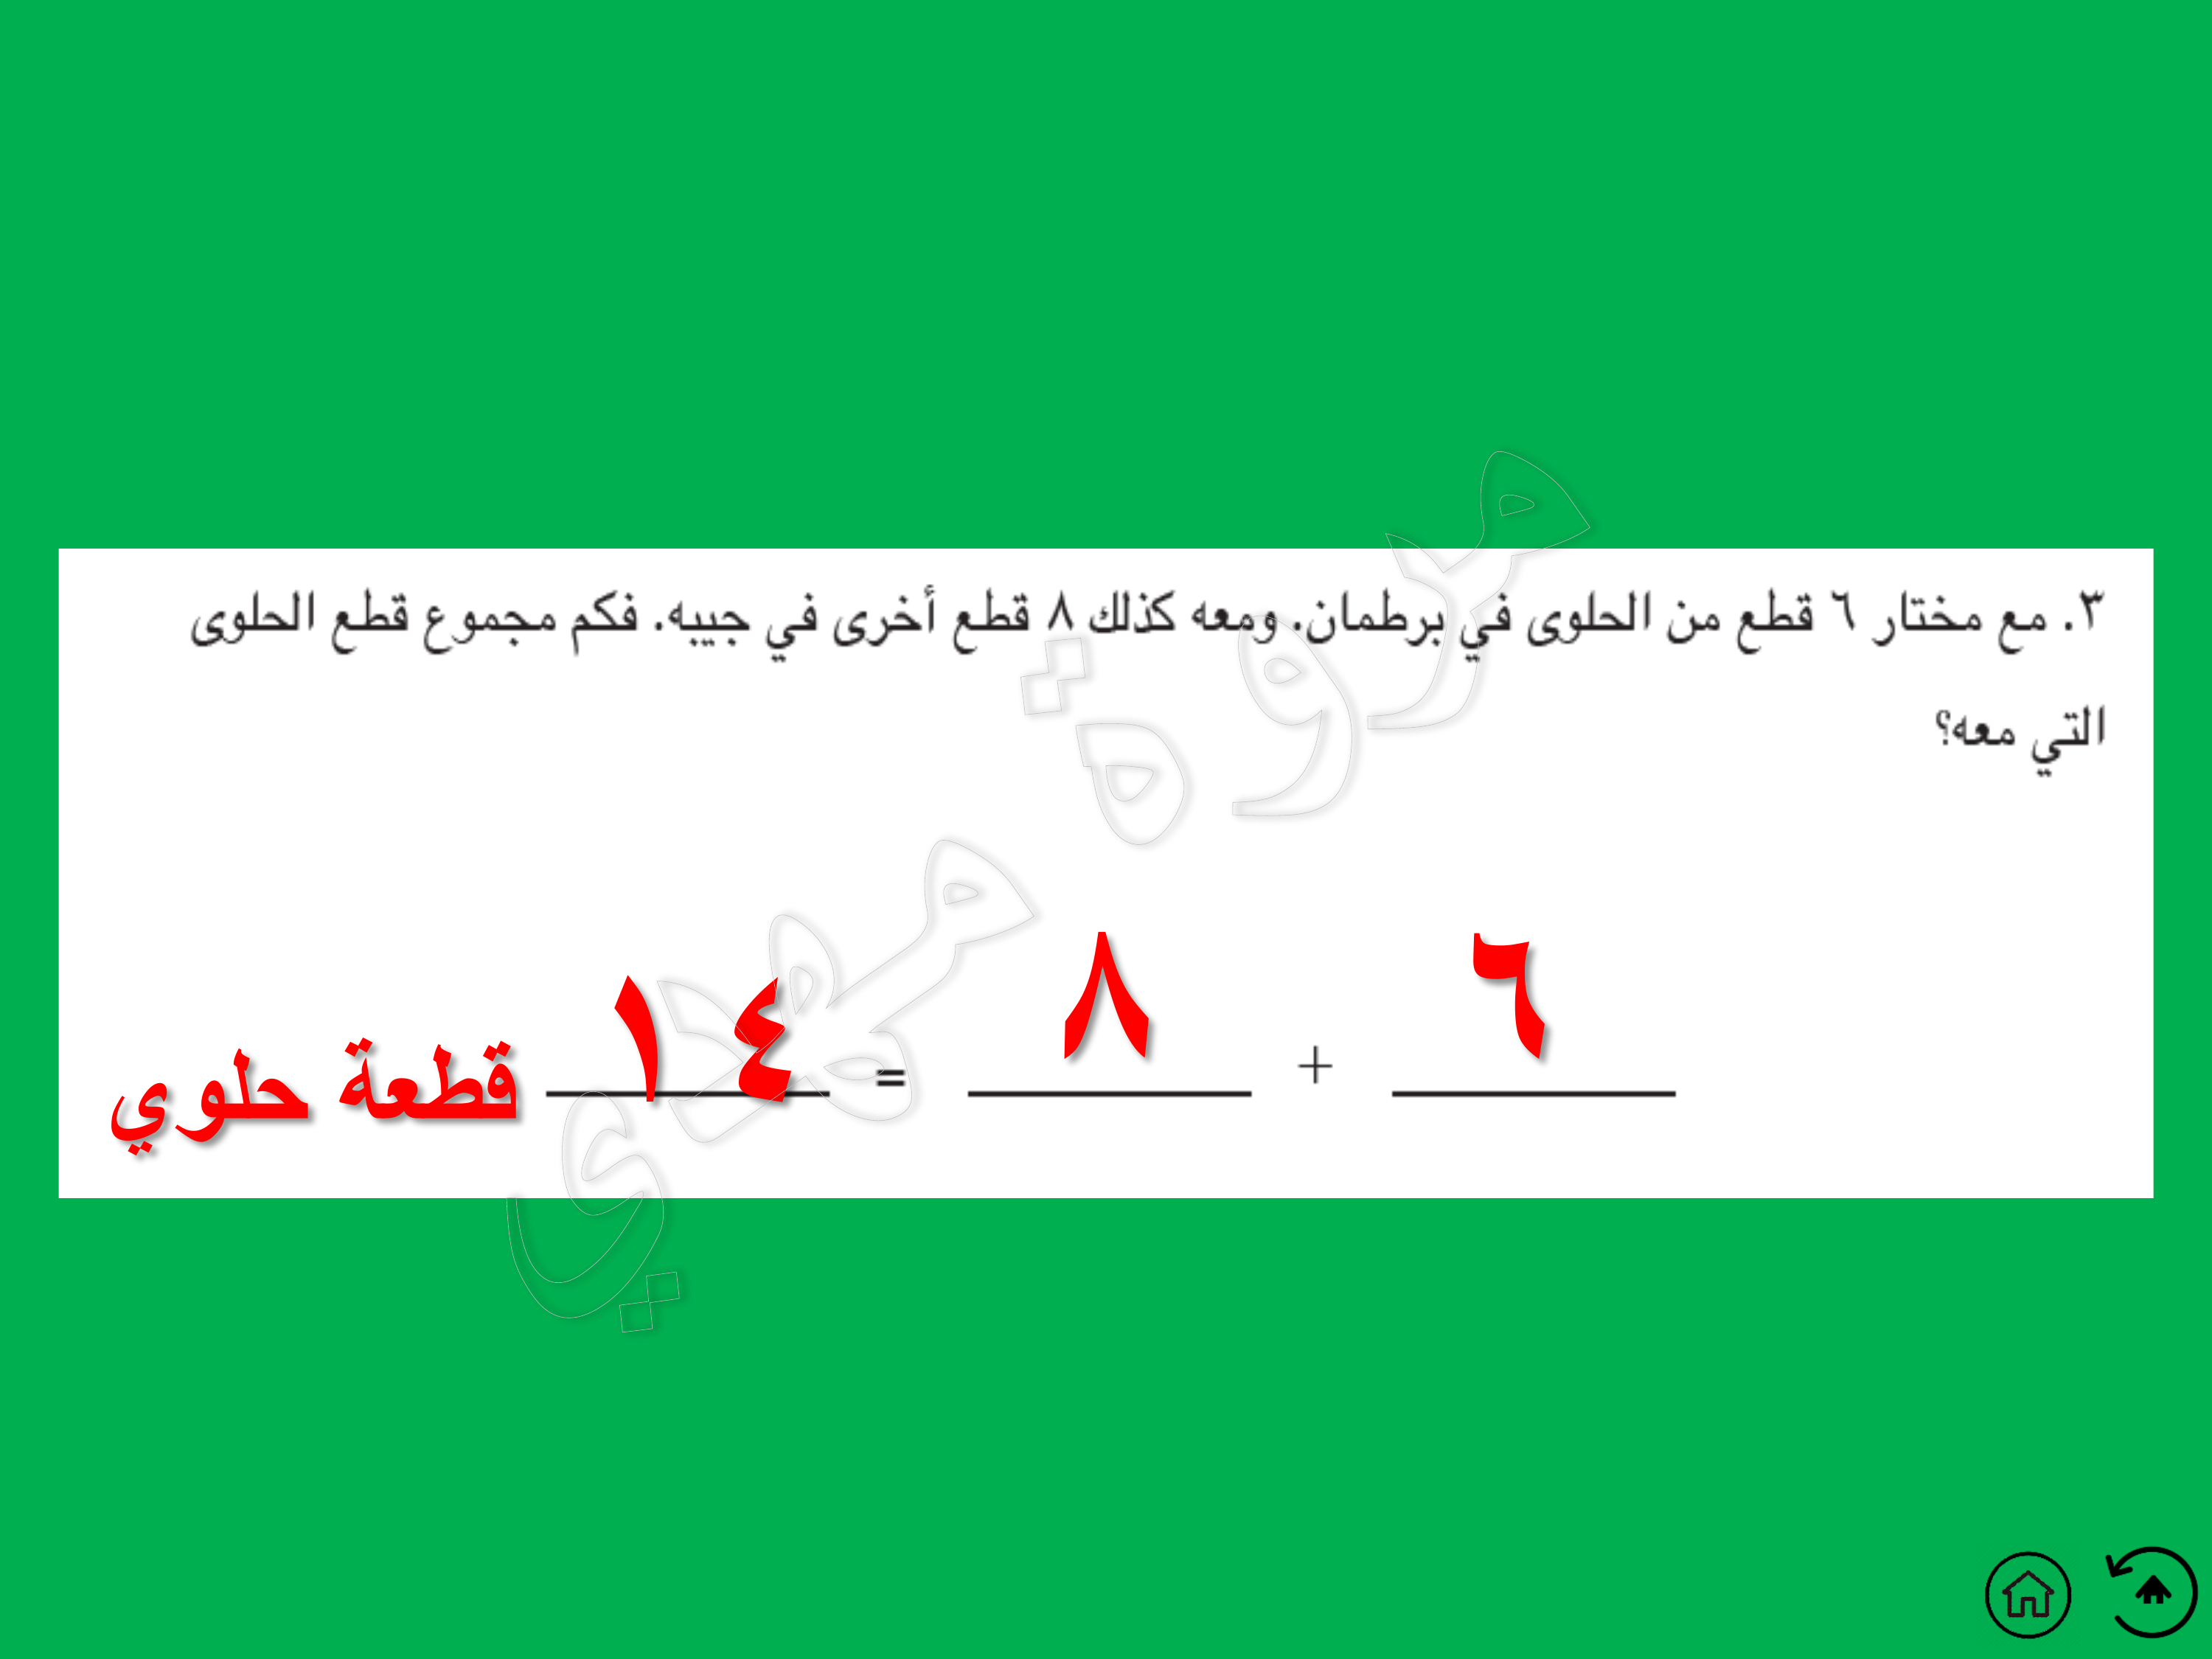 ٣. مع مختار ٦ قطع من الحلوى في برطمان. ومعه كذلك ٨ قطع أخرى في جيبه. فكم مجموع قطع الحلوى
التي معه؟
٦ + ٨ = ١٤ قطعة حلوي
مروة مهدي